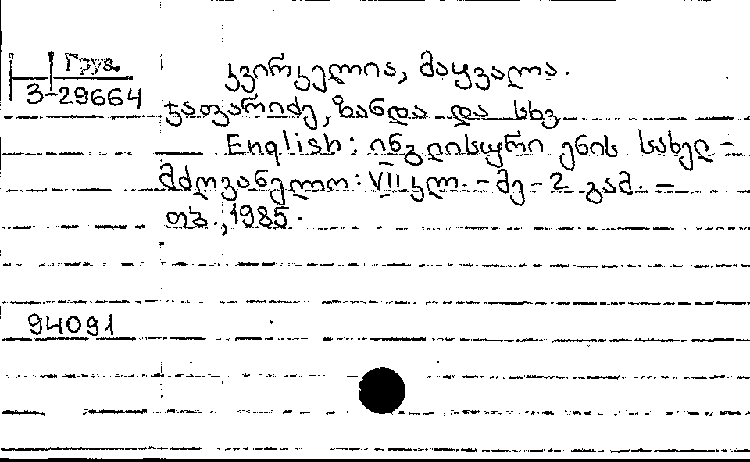 Груз.
3-29664
კვირკველია, მაყვალა.
ჯაფარიძე, ზანდა და სხვ
English: ინგლისური ენის სახელ-
მძღვანელო: VII კლ. - მე-2 გამ. -
თბ., 1985.
94091